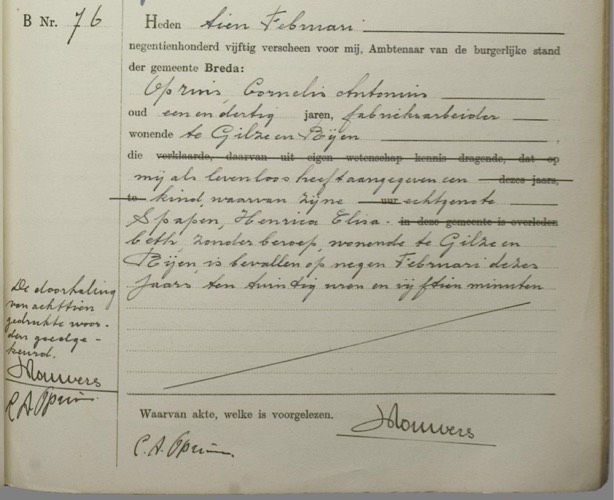 B Nr. 76
Heden tien Februari
negentienhonderd vijftig verscheen voor mij, Ambtenaar van de burgerlijke stand
der gemeente Breda:
Oprins, Cornelis Antonius
oud eenendertig jaren, fabrieksarbeider
wonende te Gilze en Rijen
die verklaarde, daarvan uit eigen wetenschap kennis dragende, dat op
mij als levenloos heeft aangegeven een dezes jaars,
te kind, waarvan zijne uur echtgenote
Spapen, Henrica Elisa- in deze gemeente is overleden
beth, zonder beroep, wonende te Gilze en
Rijen, is bevallen op negen Februari dezes
jaars ten twintig uren en vijftien minuten
De doorhaling
van achttien
gedrukte woor-
den goedge-
keurd.
C A Oprins
Waarvan akte, welke is voorgelezen.
C. A. Oprins.